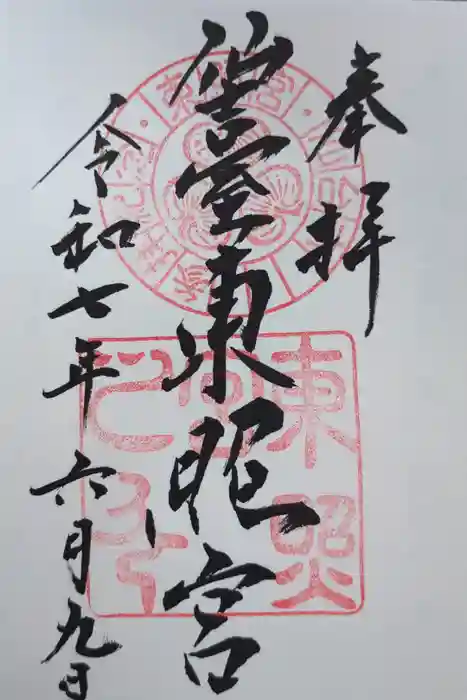 奉拝
仙臺東照宮
令和七年六月九日
東照宮